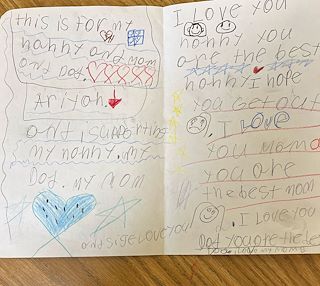 this is for my
nanny and mom
and Dot.
Ariyah.
ant, supporting
my nanny. my
Dot. my mom
and sige Love you
I Love you
nanny you
are the best
nanny I hope
you Get out
I Love
you mom
you are
the best mom
I Love you
Dot you are the best